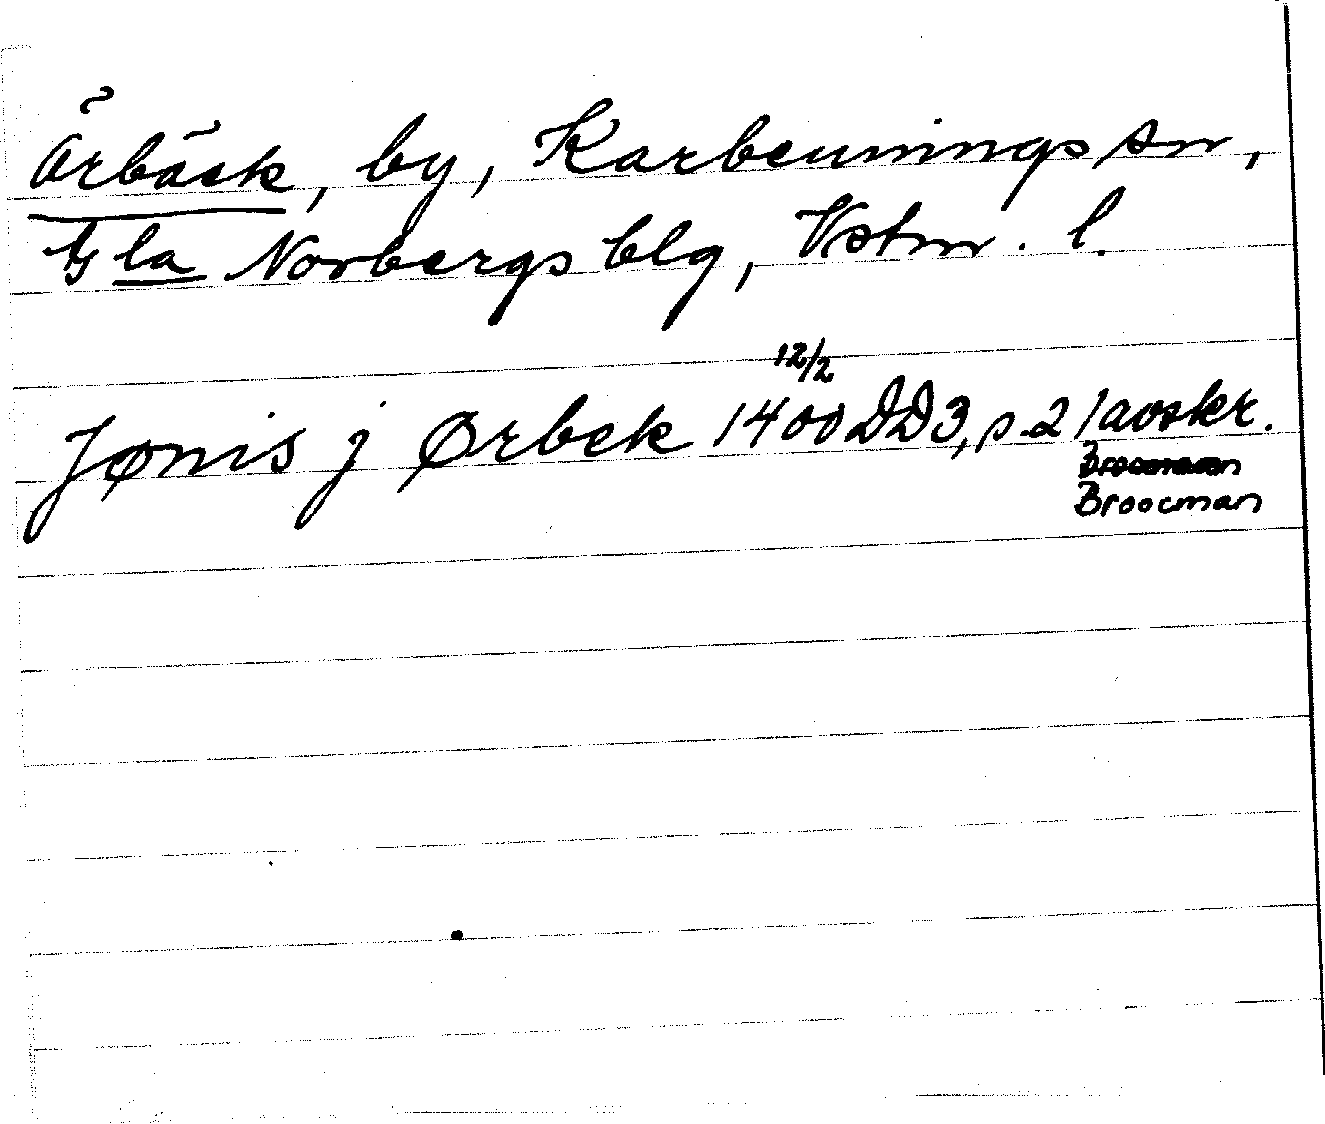 Örbäck, by, Karbennings sn,
Gla Norbergs blg, Vstm. l.
Jønis j Ørbek 1400 12/2 DD3, p. 21 avskr.
Broocman
Broocman